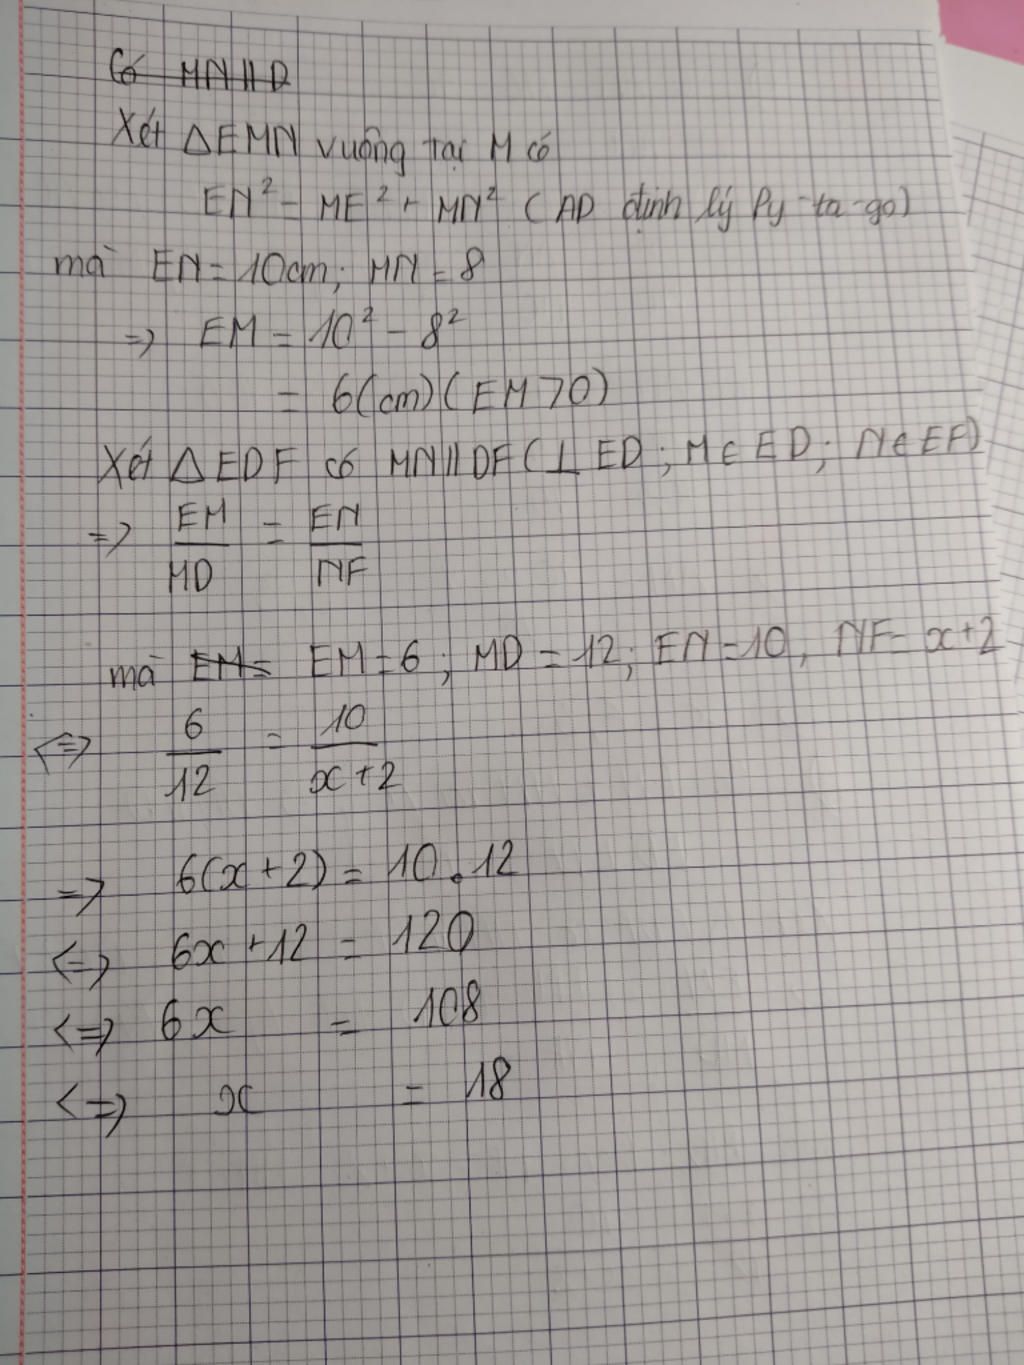 Có MN//D
Xét ΔEMN vuông tại M có
EN² = ME² + MN² (AD định lý Py-ta-go)
mà EN = 10cm; MN = 8
=> EM = 10² - 8²
= 6(cm)(EM>0)
Xét ΔEDF có MN//DF(⊥ED; M∈ED; N∈EF)
=> EM/MD = EN/NF
mà EM= EM=6; MD=12; EN=10, NF=x+2
<=> 6/12 = 10/x+2
=> 6(x+2) = 10.12
<=> 6x+12 = 120
<=> 6x = 108
<=> x = 18